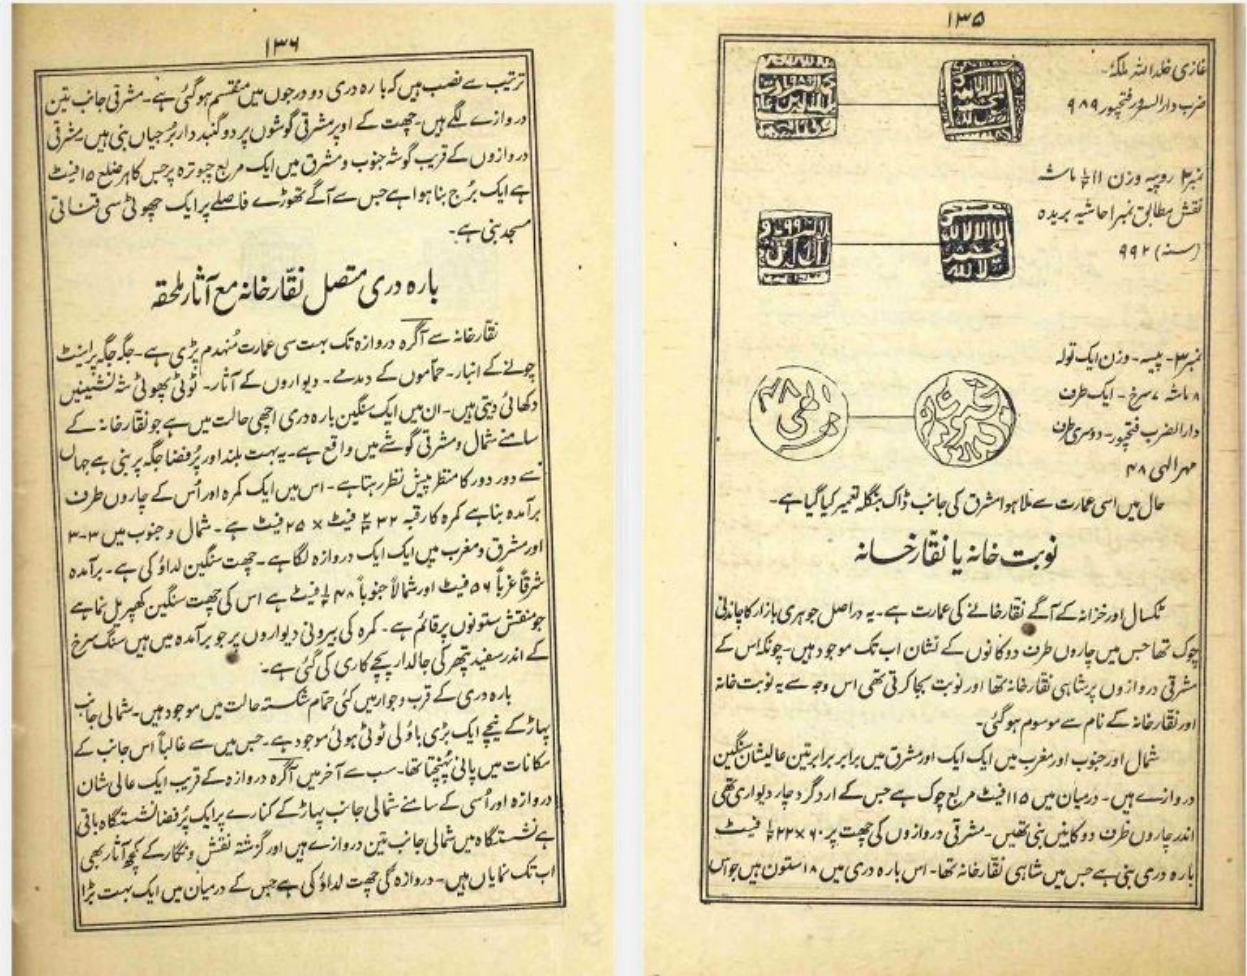 ۱۳۵
غازی خلد اللہ ملکہٗ۔
ضرب دار السرور فتحپور ۹۸۹
نمبر۲ روپیہ وزن ۱۱ ماشہ
نقش مطابق نمبر۱ حاشیہ بریدہ
(سنہ) ۹۹۲
نمبر۳۔ پیسہ۔ وزن ایک تولہ
۸ ماشہ ۷ سرخ۔ ایک طرف
دار الضرب فتحپور۔ دوسری طرف
مہر الٰہی ۴۸
حال میں اسی عمارت سے ملا ہوا مشرق کی جانب ڈاک بنگلہ تعمیر کیا گیا ہے۔
نوبت خانہ یا نقّار خانہ
ٹکسال اور خزانہ کے آگے نقار خانے کی عمارت ہے۔ یہ در اصل جوہری بازار کا چاندنی
چوک تھا جس میں چاروں طرف دوکانوں کے نشان اب تک موجود ہیں۔ چونکہ اس کے
مشرقی دروازوں پر شاہی نقار خانہ تھا اور نوبت بجا کرتی تھی اس وجہ سے یہ نوبت خانہ
اور نقار خانہ کے نام سے موسوم ہو گئی۔
شمال اور جنوب اور مغرب میں ایک ایک اور مشرق میں برابر برابر تین عالیشان سنگین
دروازے ہیں۔ درمیان میں ۱۱۵ فیٹ مربع چوک ہے جس کے ارد گرد چار دیواری تھی
اندر چاروں طرف دوکانیں بنی تھیں۔ مشرقی دروازوں کی چھت پر ۶۰×۲۲½ فیٹ
بارہ دری بنی ہے جس میں شاہی نقار خانہ تھا۔ اس بارہ دری میں ۱۸ ستون ہیں جو اس
۱۳۶
ترتیب سے نصب ہیں کہ بارہ دری دو درجوں میں منقسم ہو گئی ہے۔ مشرقی جانب تین
دروازے لگے ہیں۔ چھت کے اوپر مشرقی گوشوں پر دو گنبد دار بُرجیاں بنی ہیں۔ مشرقی
دروازوں کے قریب گوشہ جنوب و مشرق میں ایک مربع چبوترہ پر جس کا ہر ضلع ۱۵ فیٹ
ہے ایک بُرج بنا ہوا ہے جس سے آگے تھوڑے فاصلے پر ایک چھوٹی سی قناتی
مسجد بنی ہے۔
بارہ دری متصل نقّار خانہ مع آثار ملحقہ
نقار خانہ سے آگرہ دروازہ تک بہت سی عمارت مُنہدم پڑی ہے۔ جگہ جگہ پر اینٹ
چونے کے انبار۔ حمّاموں کے دمدمے۔ دیواروں کے آثار۔ ٹوٹی پھوٹی شہ نشینیں
دکھائی دیتی ہیں۔ ان میں ایک سنگین بارہ دری اچھی حالت میں ہے جو نقار خانہ کے
سامنے شمال و مشرقی گوشے میں واقع ہے۔ یہ بہت بلند اور پُر فضا جگہ پر بنی ہے جہاں
سے دور دور کا منظر پیش نظر رہتا ہے۔ اس میں ایک کمرہ اور اُس کے چاروں طرف
برآمدہ بنا ہے کمرہ کا رقبہ ۳۲ فیٹ × ۲۵ فیٹ ہے۔ شمال و جنوب میں ۳-۳
اور مشرق و مغرب میں ایک ایک دروازہ لگا ہے۔ چھت سنگین لداؤ کی ہے۔ برآمدہ
شرقاً غرباً ۵۶ فیٹ اور شمالاً جنوباً ۴۸ فیٹ ہے اس کی چھت سنگین کھپریل نما ہے
جو منقش ستونوں پر قائم ہے۔ کمرہ کی بیرونی دیواروں پر جو برآمدہ میں ہیں سنگ سرخ
کے اندر سفید پتھر کی جالدار پچے کاری کی گئی ہے۔
بارہ دری کے قرب و جوار میں کئی حمام شکستہ حالت میں موجود ہیں۔ شمالی جانب
پہاڑ کے نیچے ایک بڑی باؤلی ٹوٹی ہوئی موجود ہے۔ جس میں سے غالباً اس جانب کے
مکانات میں پانی پُہنچتا تھا۔ سب سے آخر میں آگرہ دروازہ کے قریب ایک عالی شان
دروازہ اور اُسی کے سامنے شمالی جانب پہاڑ کے کنارے پر ایک پُر فضا نشستگاہ باقی
ہے نشستگاہ میں شمالی جانب تین دروازے ہیں اور گزشتہ نقش و نگار کے کچھ آثار بھی
اب تک نمایاں ہیں۔ دروازہ کی چھت لداؤ کی ہے جس کے درمیان میں ایک بہت بڑا